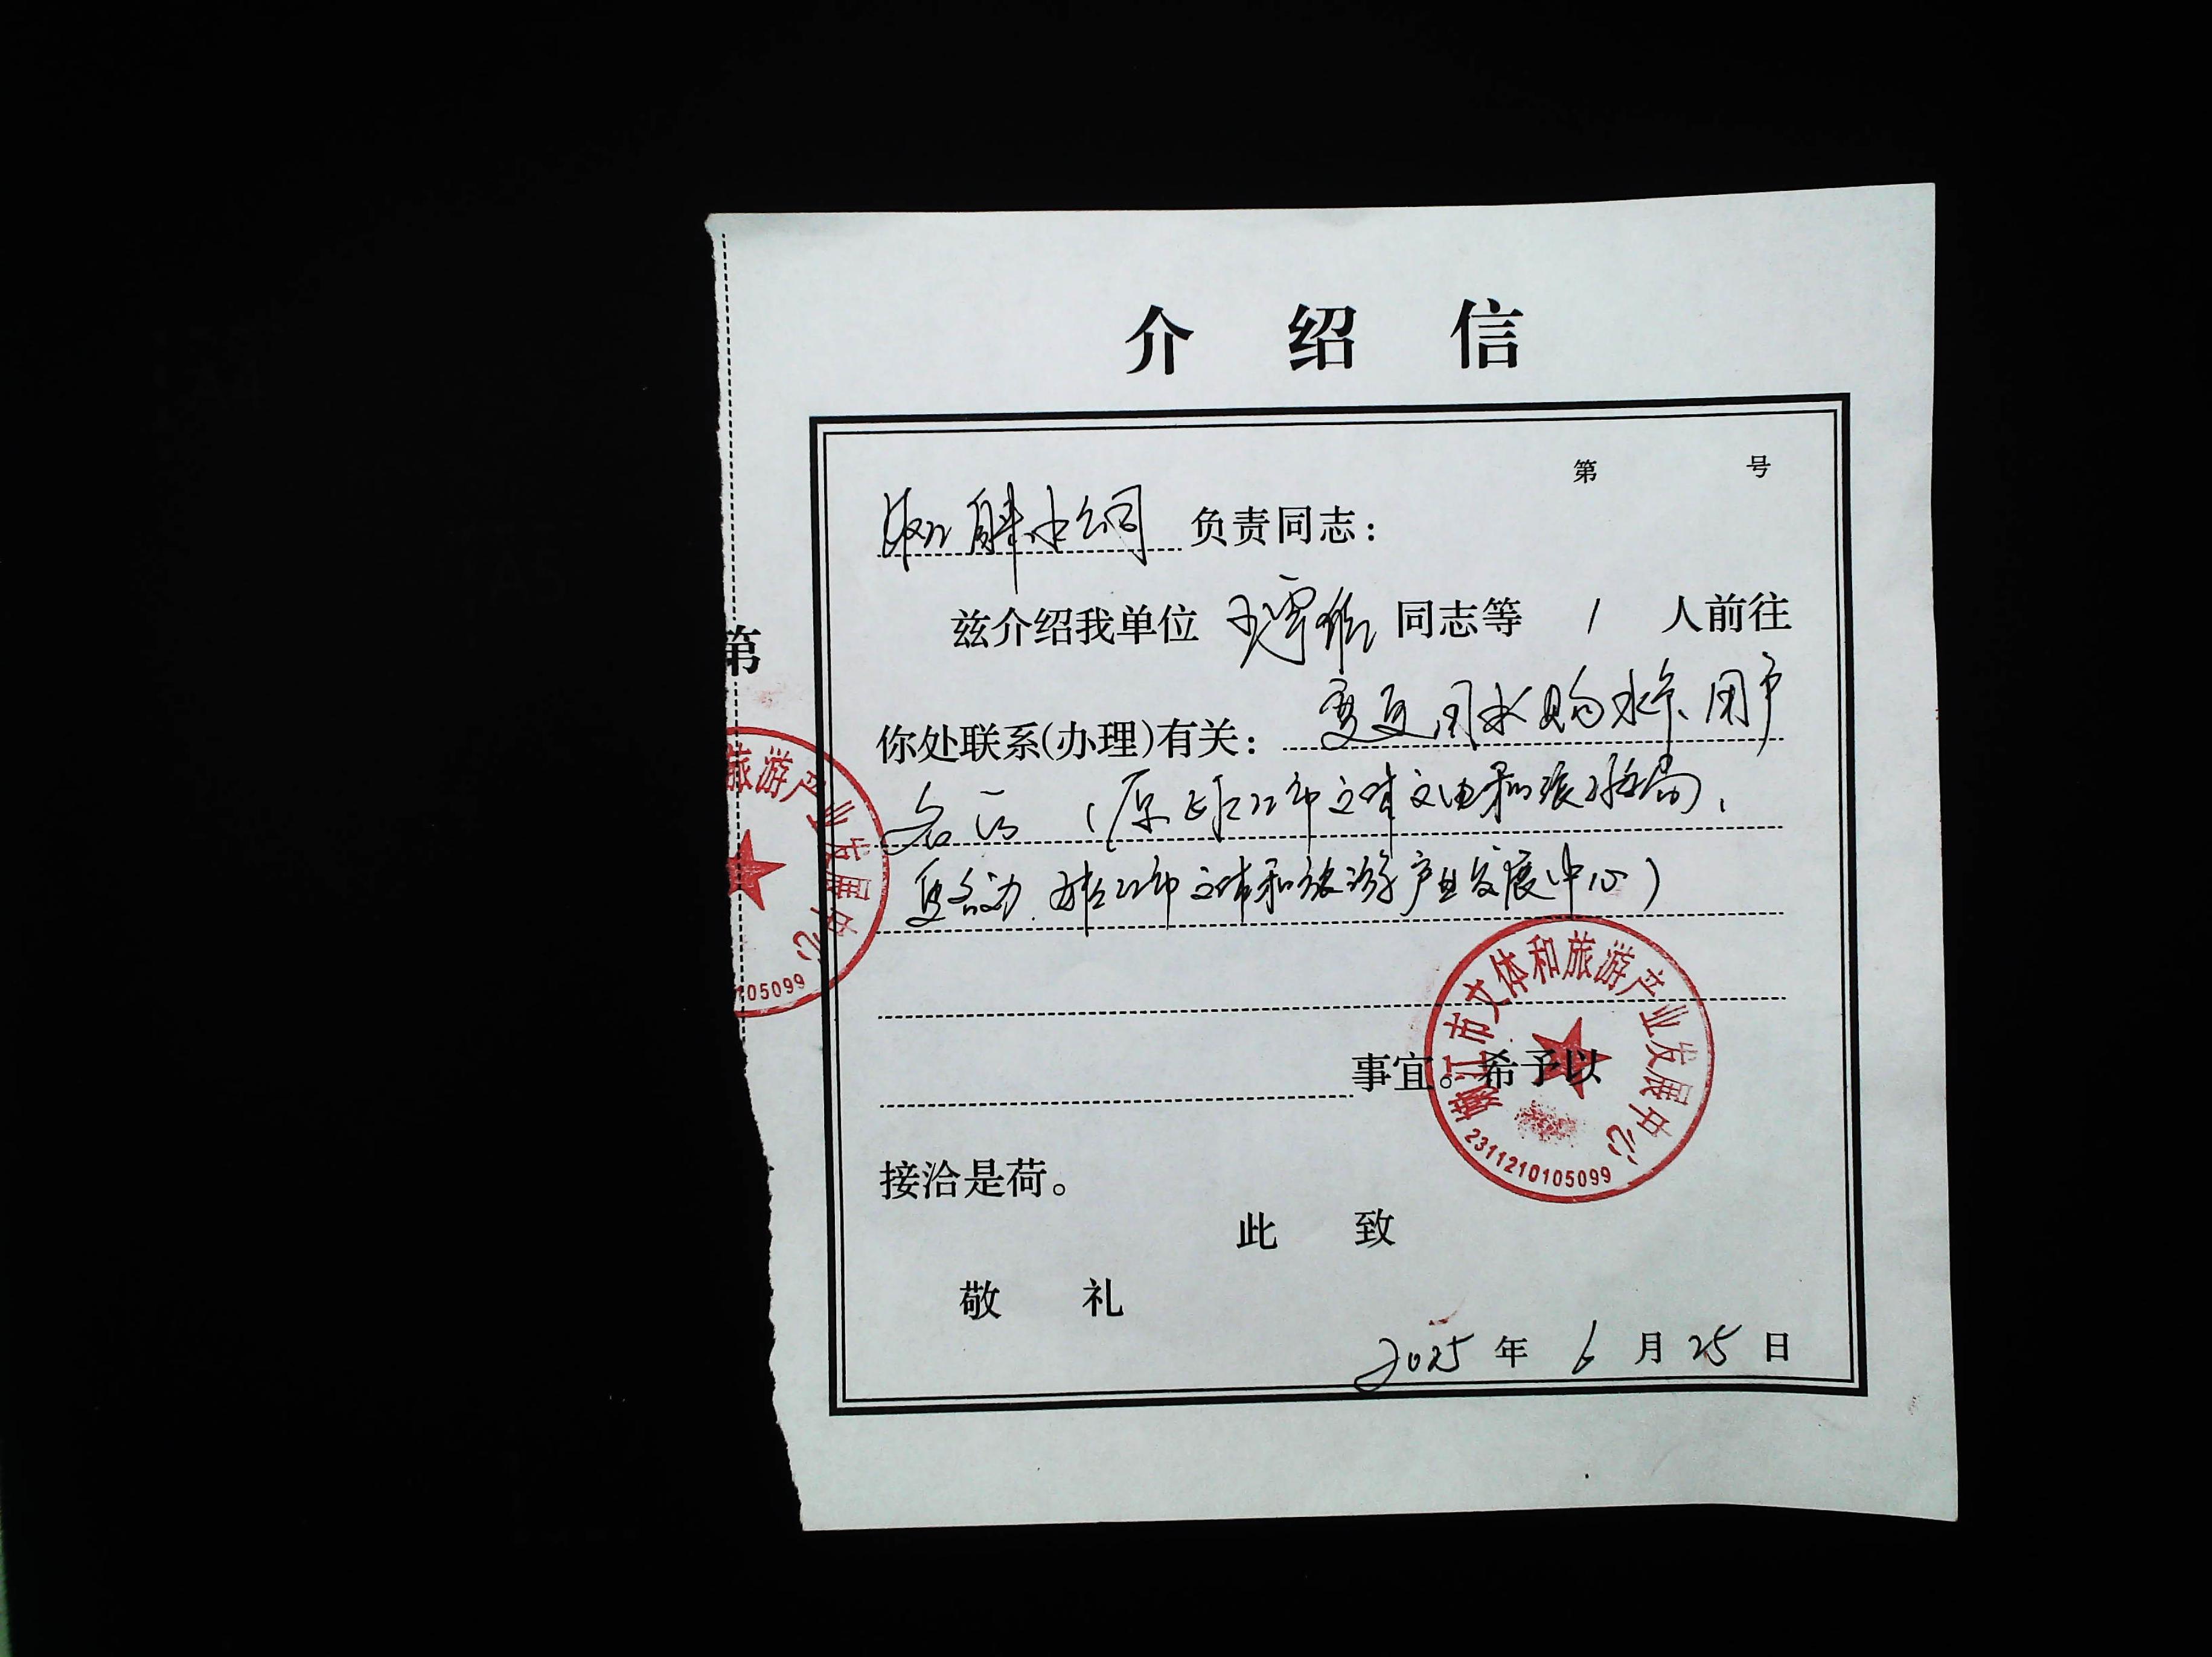 介绍信
第 号
负责同志：
兹介绍我单位 同志等 1 人前往
你处联系(办理)有关： 变更用水购水卡、用户
名称 (原嫩江市文体广电和旅游局，
更名为 嫩江市文体和旅游产业发展中心)
事宜。希予以
接洽是荷。
此致
敬礼
2025年6月25日
嫩江市文体和旅游产业发展中心
2311210105099
第
旅游产业发展中心
105099